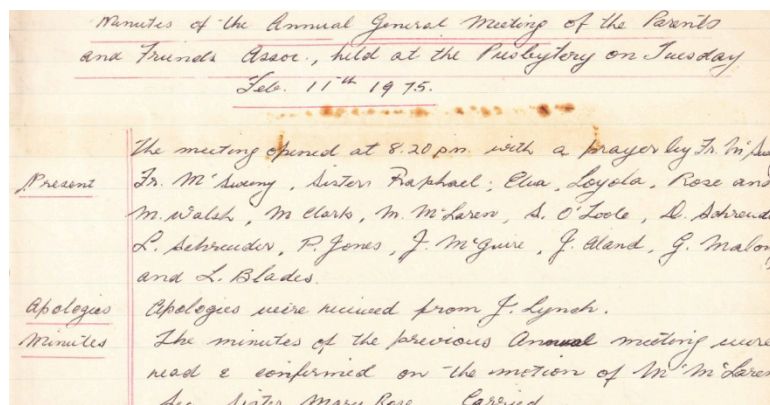 Minutes of the Annual General Meeting of the Parents
and Friends Assoc., held at the Presbytery on Tuesday
Feb. 11th 1975.
The meeting opened at 8.20 pm with a prayer by Fr. McSw
Present Fr. McSweny, Sisters Raphael, Clua, Loyola, Rose and
M. Walsh, M Clark, M. McLaren, S. O'Toole, D. Schreud
L. Schreuder, P. Jones, J. McGuire, J. Aland, G. Malon
and L. Blades.
Apologies Apologies were received from J. Lynch.
Minutes The minutes of the previous Annual meeting were
read & confirmed on the motion of M McLaren
Sec. Sister Mary Rose Carried